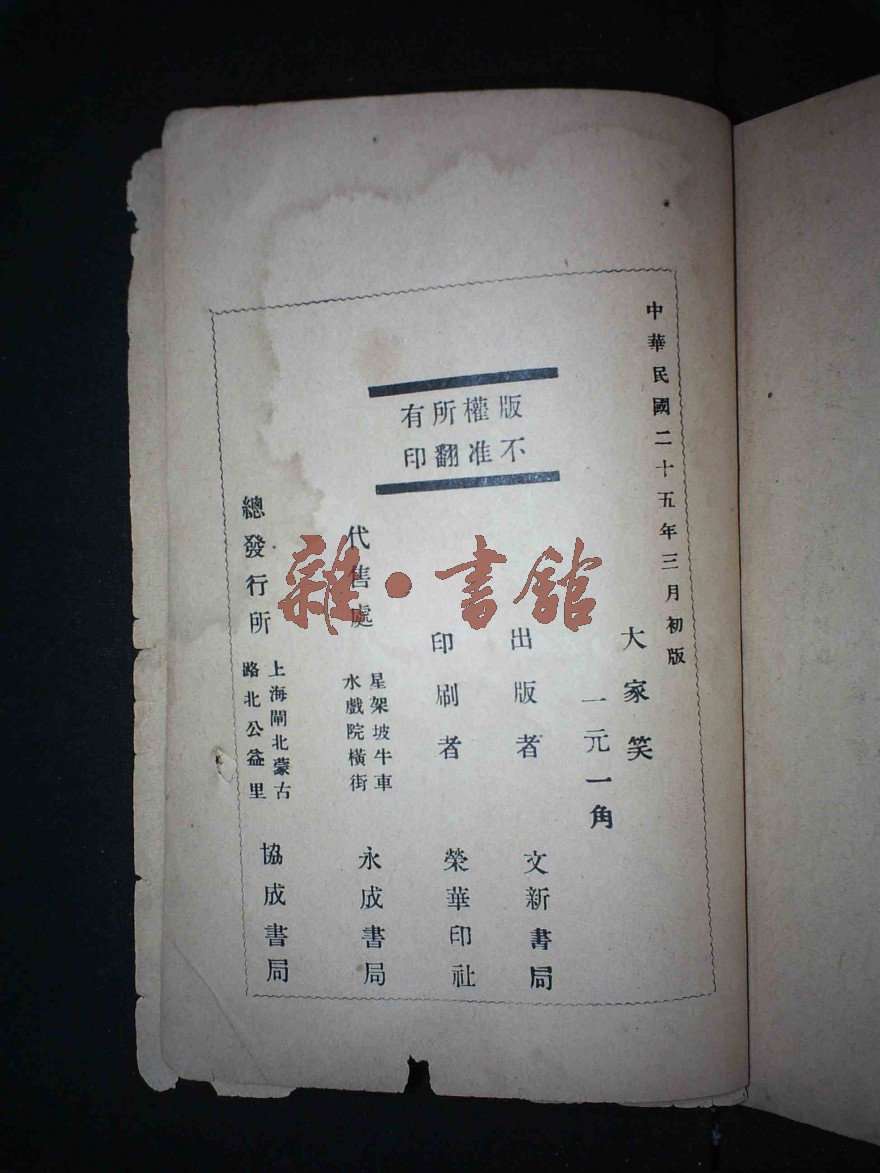 中華民國二十五年三月初版
大家笑
一元一角
版權所有
不准翻印
出版者 文新書局
印刷者 榮華印社
代售處 星架坡牛車水戲院橫街 永成書局
總發行所 上海閘北蒙古路北公益里 協成書局
雜·書館